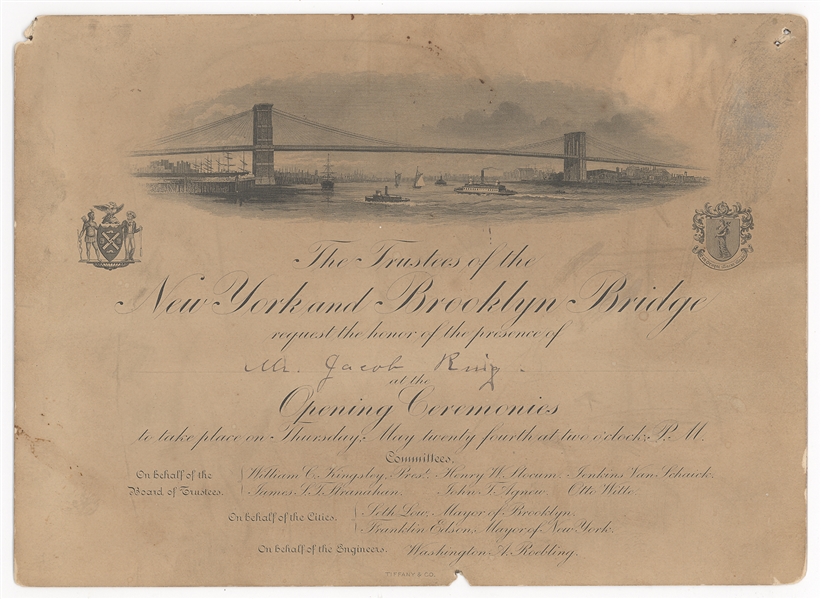 The Trustees of the
New York and Brooklyn Bridge
request the honor of the presence of
Mr. Jacob
at the
Opening Ceremonies
to take place on Thursday, May twenty fourth at two o'clock, P. M.
Committees.
On behalf of the Board of Trustees. William C. Kingsley, Prest. Henry W. Slocum. Jenkins Van Schaick.
James S. T. Stranahan. John T. Agnew. Otto Witte.
On behalf of the Cities. Seth Low, Mayor of Brooklyn.
Franklin Edson, Mayor of New York.
On behalf of the Engineers. Washington A. Roebling.
TIFFANY & CO.